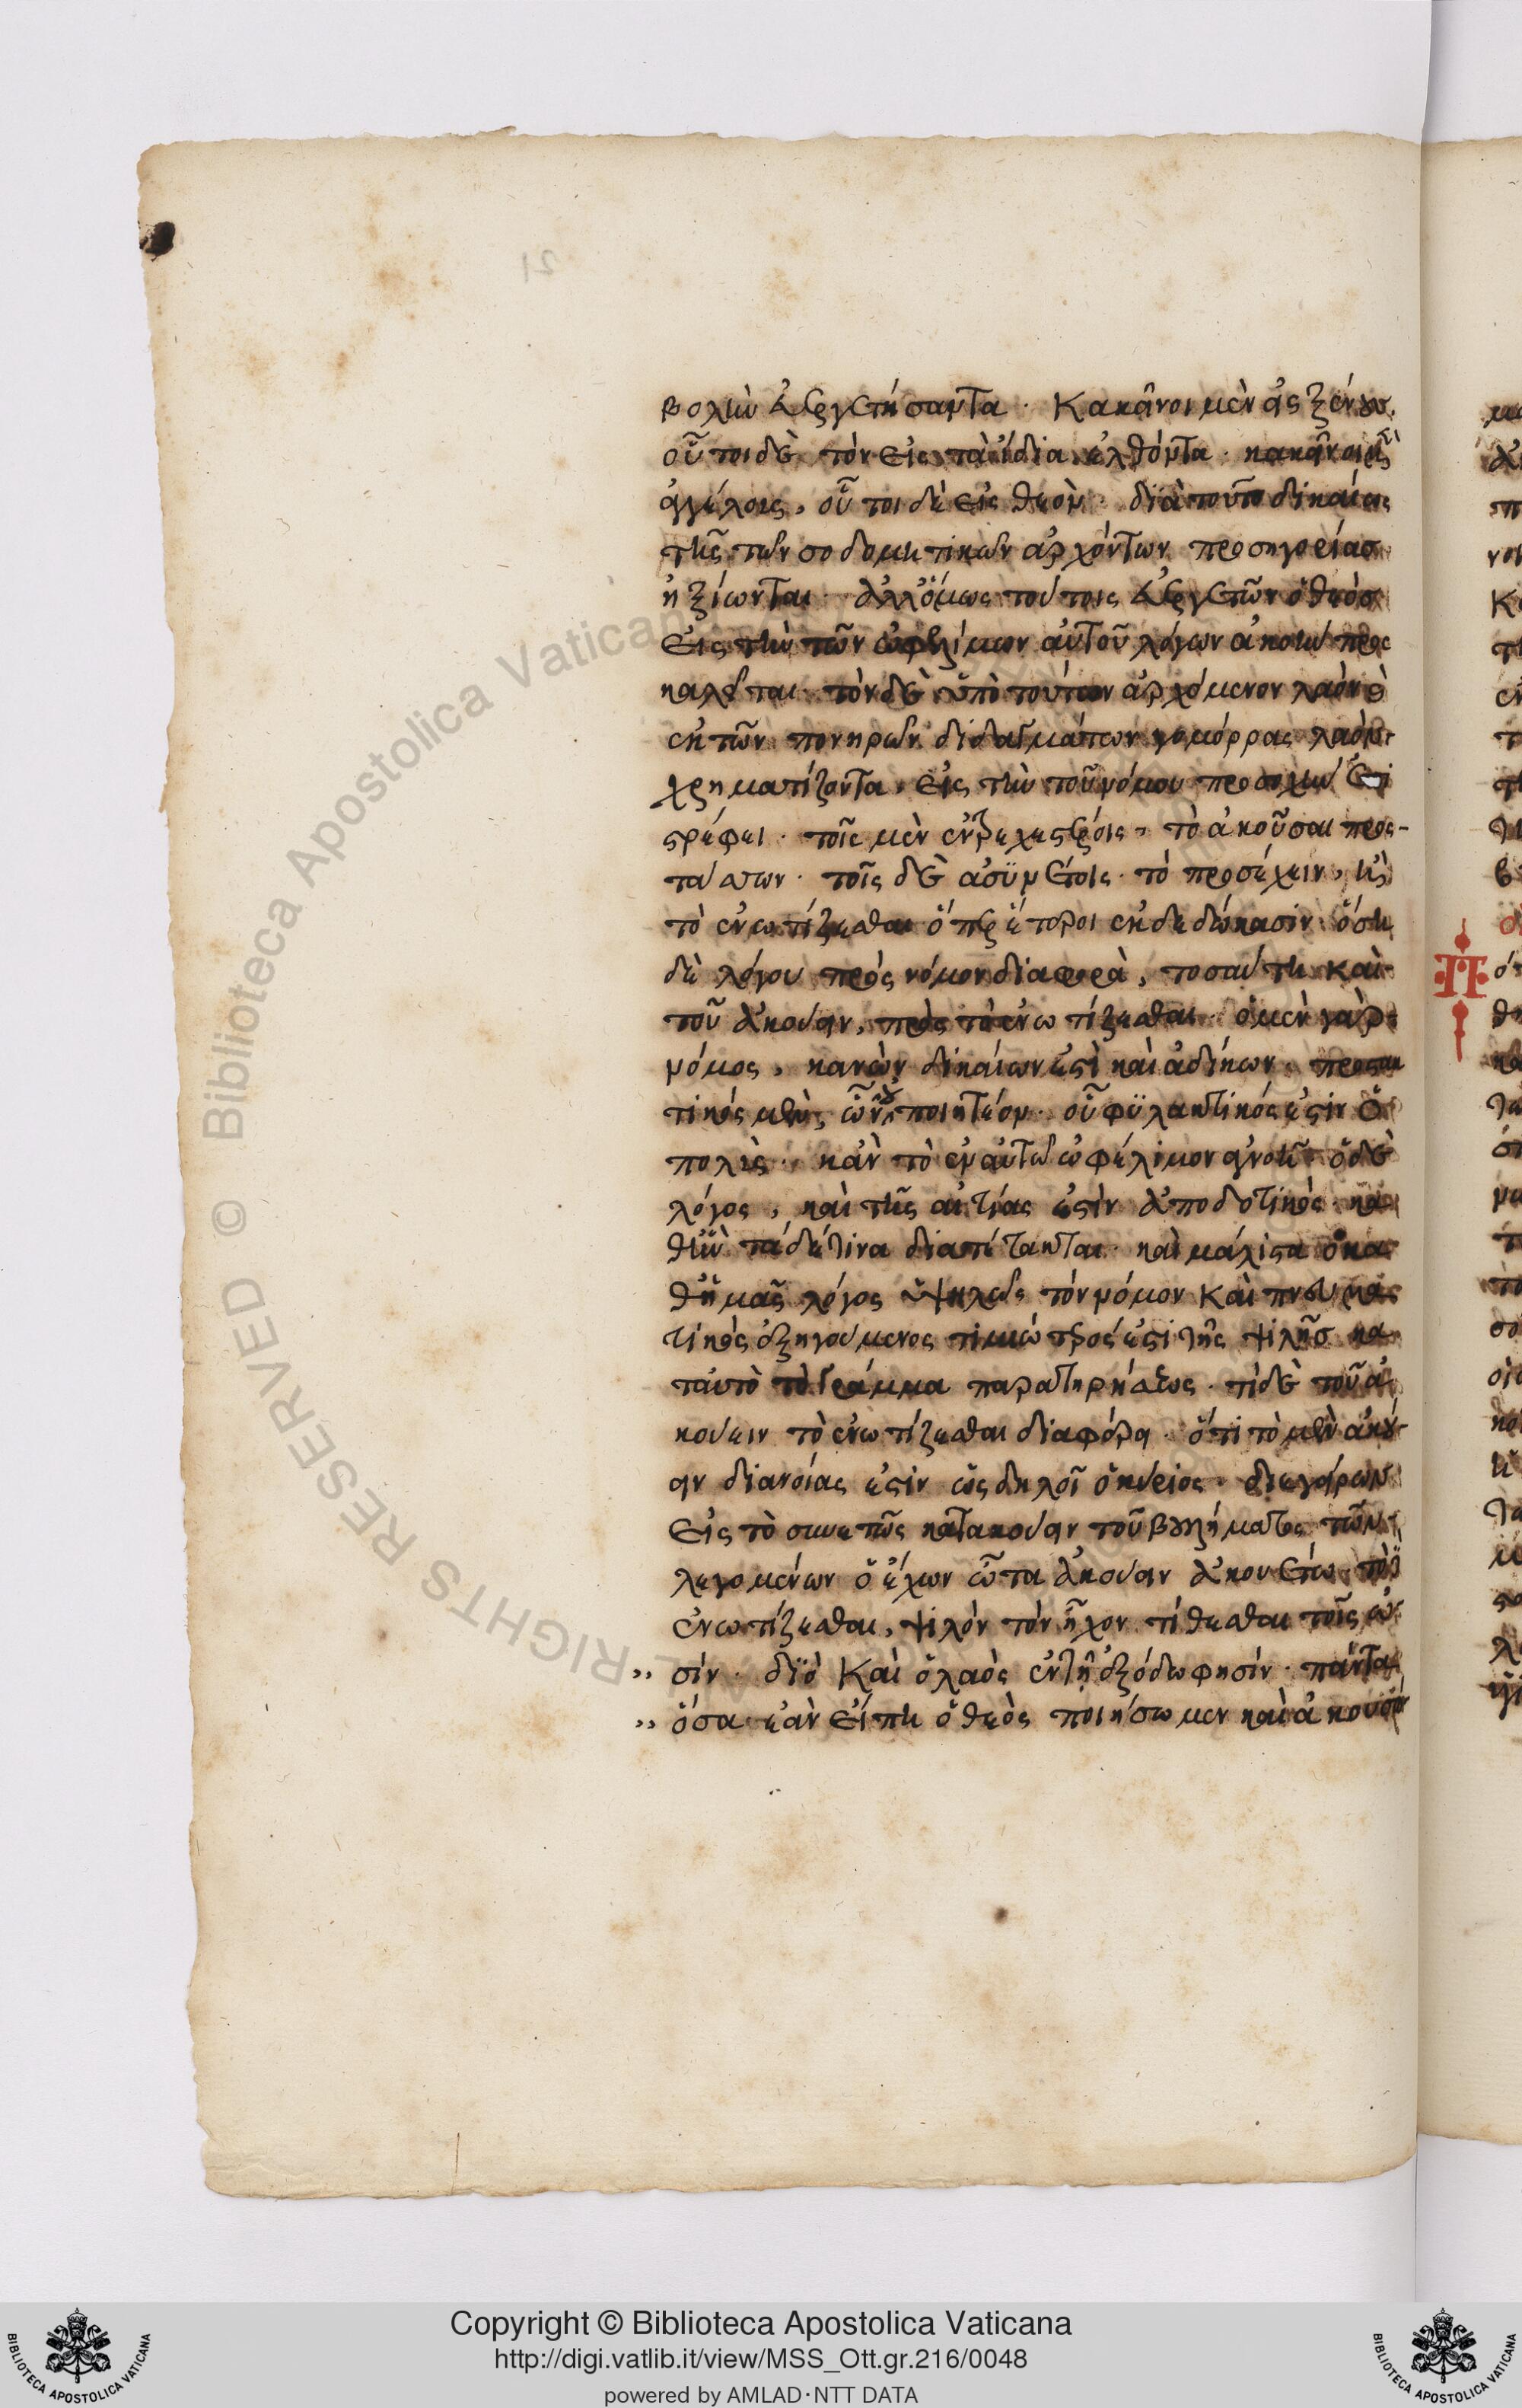 βολὴν εὐεργετήσαντα. Κακεῖνοι μὲν εἰς ξένους.
οὗτοι δὲ τὸν εἰς τὰ ἴδια ἐλθόντα. κακεῖνοι εἰς
ἀγγέλους, οὗτοι δὲ εἰς θεόν. διὰ τοῦτο δικαίως
τῆς τῶν σοδομιτικῶν ἀρχόντων προσηγορίας
ἠξίωνται. ἀλλ' ὅμως τούτους εὐεργετῶν ὁ θεὸς
εἰς τὴν τῶν ὠφελίμων αὐτοῦ λόγων ἀκοὴν προς
καλεῖται. τὸν δὲ ὑπὸ τούτων ἀρχόμενον λαὸν
ἐκ τῶν πονηρῶν διδαγμάτων γομόρρας λαὸν
χρηματίζοντα, εἰς τὴν τοῦ νόμου προσοχὴν ἐπι
στρέφει. τοῖς μὲν ἐντρεχεστέροις, τὸ ἀκοῦσαι προς-
τάττων. τοῖς δὲ ἀσυνέτοις. τὸ προσέχειν, καὶ
τὸ ἐνωτίζεσθαι ὅπερ ἕτεροι ἐκδεδώκασιν. ὅση
δὲ λόγου πρὸς νόμον διαφορὰ, τοσαύτη καὶ
τοῦ ἀκούειν, πρὸς τὸ ἐνωτίζεσθαι. ὁ μὲν γὰρ
νόμος, κανὼν δικαίων ἐστὶ καὶ ἀδίκων, προστα
τικός μὲν, ὧν ποιητέον. οὗ φυλακτικός ἐστιν ὁ
πολὺς. κἂν τὸ ἐν αὐτῷ ὠφέλιμον ἀγνοῆ. ὁ δὲ
λόγος, καὶ τῆς αἰτίας ἐστὶν ἀποδοτικὸς. κα
θ' ἣν τὰ δέ τινα διατέτακται. καὶ μάλιστα ὁ κα
θ' ἡμᾶς λόγος ὑψηλῶς τὸν νόμον καὶ πνευμα
τικῶς ἐξηγούμενος τιμιώτερός ἐστι τῆς ψιλῆς κα
τ' αὐτὸ τὸ γράμμα παρατηρήσεως. τί δὲ τοῦ ἀ
κούειν τὸ ἐνωτίζεσθαι διαφέρει. ὅτι τὸ μὲν ἀκού
ειν διανοίας ἐστὶν ὡς δηλοῖ ὁ κύριος. διεγείρων
εἰς τὸ συνετῶς κατακούειν τοῦ βουλήματος τῶν
λεγομένων ὁ ἔχων ὦτα ἀκούειν ἀκουέτω. τὸ
ἐνωτίζεσθαι, ψιλὸν τὸν ἦχον τίθεσθαι τοῖς ὠ
,, σίν. διὸ καὶ ὁ λαὸς ἐν τῇ ἐξόδω φησίν. πάντα
,, ὅσα ἐὰν εἴπη ὁ θεὸς ποιήσωμεν καὶ ἀκουσό
Copyright © Biblioteca Apostolica Vaticana
http://digi.vatlib.it/view/MSS_Ott.gr.216/0048
powered by AMLAD·NTT DATA